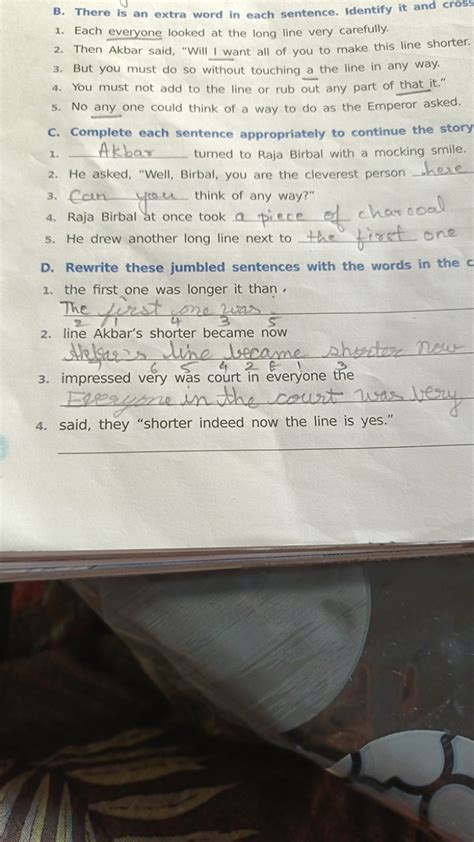 B. There is an extra word in each sentence. Identify it and cross
1. Each everyone looked at the long line very carefully.
2. Then Akbar said, "Will I want all of you to make this line shorter.
3. But you must do so without touching a the line in any way.
4. You must not add to the line or rub out any part of that it."
5. No any one could think of a way to do as the Emperor asked.
C. Complete each sentence appropriately to continue the story
1. Akbar turned to Raja Birbal with a mocking smile.
2. He asked, "Well, Birbal, you are the cleverest person here
3. Can you think of any way?"
4. Raja Birbal at once took a piece of charcoal
5. He drew another long line next to the first one
D. Rewrite these jumbled sentences with the words in the c
1. the first one was longer it than
The first one was
2 1 4 3 5
2. line Akbar's shorter became now
Akbar's line became shorter now
6 5 4 2 1 3
3. impressed very was court in everyone the
Everyone in the court was very
4. said, they "shorter indeed now the line is yes."